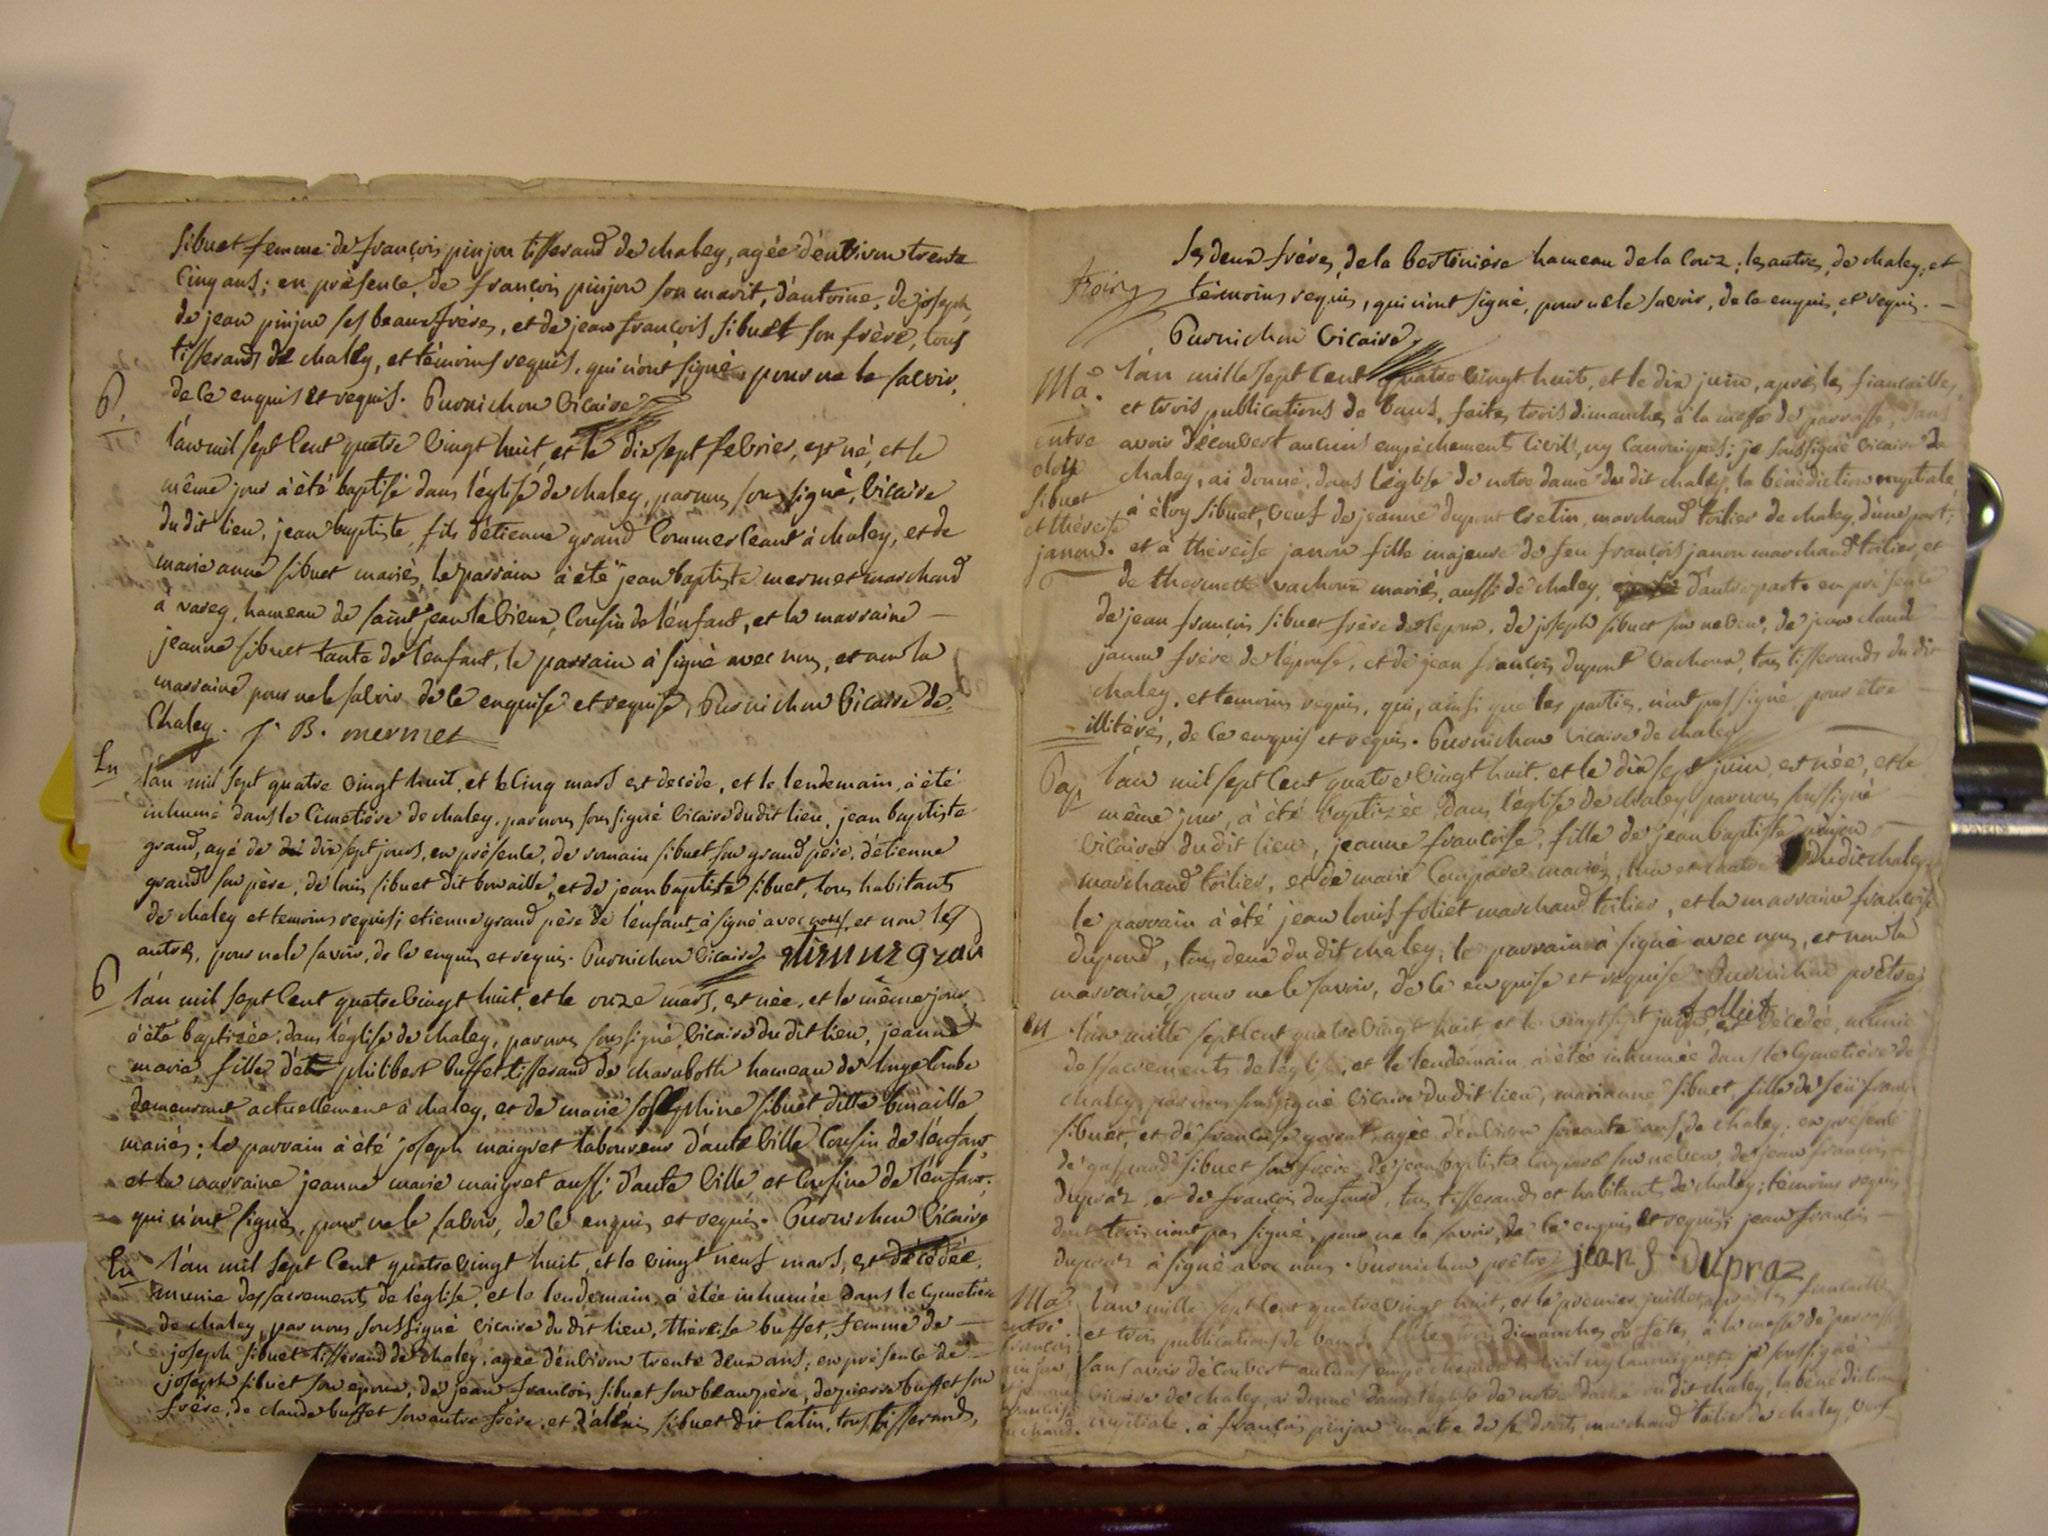 sibuet femme de françois pinjon tisserand de chaley, agée d'environ trente
cinq ans; en présence, de françois pinjon son marit, d'antoine, de joseph,
de jean pinjon ses beaux frères, et de jean françois sibuet son frère, tous
tisserands de chaley, et témoins requis, qui n'ont signé, pour ne le savoir,
de ce enquis et requis. Purnichon vicaire
B.
l'an mil sept cent quatre vingt huit, et le dix sept febrier, est né, et le
même jour à été baptisé dans l'église de chaley, par nous sous signé, vicaire
du dit lieu, jean baptiste, fils d'étienne grand commerceant à chaley, et de
marie anne sibuet mariés, le parrain à été jean baptiste mermet marchand
à varey, hameau de saint jean le vieux, cousin de l'enfant, et la marraine
jeanne sibuet tante de l'enfant, le parrain à signé avec nous, et non la
marraine pour ne le savoir de ce enquise et requise, Purnichon vicaire de
Chaley. J B. mermet
En
l'an mil sept quatre vingt huit, et le cinq mars est decédé, et le lendemain, à été
inhumé dans le cimetière de chaley, par nous sous signé vicaire du dit lieu, jean baptiste
grand, agé de dix sept jours, en présence, de romain sibuet son grand père, d'étienne
grand son père, de louis sibuet dit bouaille, et de jean baptiste sibuet, tous habitants
de chaley et temoins requis; etienne grand père de l'enfant à signé avec nous, et non les
autres, pour ne le savoir, de ce enquis et requis. Purnichon vicaire etienne grand
B
l'an mil sept cent quatre vingt huit, et le onze mars, est née, et le même jour,
à été baptizée, dans l'église de chaley, par nous sous signé, vicaire du dit lieu, jeanne
marie, fille de philibert buffet tisserand de charabotte hameau de
demeurant actuellement à chaley, et de marie josephine sibuet ditte
mariés; le parrain à été joseph maigret laboureur d'aute ville cousin de l'enfant,
et la marraine jeanne marie maigret aussi d'aute ville et cousine de l'enfant,
qui n'ont signé, pour ne le savoir, de ce enquis et requis. Purnichon vicaire
En
l'an mil sept cent quatre vingt huit, et le vingt neuf mars, est décédée,
munie des sacrements de l'église, et le lendemain, a étée inhumée dans le cymetière
de chaley, par nous soussigné vicaire du dit lieu, thèreise buffet, femme de
joseph sibuet tisserand de chaley, agée d'environ trente deux ans; en présence de
joseph sibuet son époux, de jean françois sibuet son beau père, de pierre buffet son
frère, de claude buffet son autre frère, et d'aléxis sibuet dit catin, tous tisserands,
les deux frères, de la bertinière hameau de la couz; les autres, de chaley; et
témoins requis, qui n'ont signé, pour ne le savoir, de ce enquis, et requis.
Purnichon vicaire
Ma. entre eloy sibuet et thèreise janon.
l'an mille sept cent quatre vingt huit, et le dix juin, après les fiançailles,
et trois publications de bans, faites trois dimanches à la messe de parroisse, sans
avoir découvert aucuns empêchements civils, ny canoniques; je soussigné vicaire de
chaley, ai donné, dans l'église de notre dame du dit chaley, la bénédiction nuptiale
à éloy sibuet, veuf de jeanne dupont cretin, marchand toilier de chaley, d'une part;
et à thèreise janon fille majeure de feu françois janon marchand toilier, et
de vachoux mariés, aussi de chaley, d'autre part. en présence
de jean françois sibuet frère de l'époux, de joseph sibuet son neveu, de jean claude
janon frère de l'épouse, et de jean françois dupont vachoux, tous tisserands du dit
chaley, et temoins requis, qui, ainsi que les parties, n'ont pas signé, pour être
illitérés, de ce enquis et requis. Purnichon vicaire de chaley
Bap
l'an mil sept cent quatre vingt huit, et le dix sept juin, est née, et le
même jour, à été baptizée, dans l'église de chaley par nous soussigné
vicaire du dit lieu, jeanne françoise, fille de jean baptiste pinjon
marchand toilier, et de marie mariés, du dit chaley
le parrain à été jean louis foliet marchand toilier, et la marraine françoise
dupond, tous deux du dit chaley, le parrain à signé avec nous, et non la
marraine, pour ne le savoir, de ce enquise et requise. Purnichon prêtre
folliet
en
l'an mille sept cent quatre vingt huit et le vingt sept juin, est décédée, munie
des sacrements de l'église, et le lendemain à étée inhumée dans le cymetière de
chaley, par nous soussigné vicaire du dit lieu, marianne sibuet, fille de feu
sibuet, et de françoise agée d'environ soixante ans, de chaley; en présence
de gaspard sibuet son frère, de jean baptiste son neveu, de jean françois
dupraz, et de françois tous tisserands et habitants de chaley; témoins requis
dont trois n'ont pas signé, pour ne le savoir, de ce enquis et requis; jean françois
dupraz à signé avec nous. Purnichon prêtre jean f. dupraz
Ma. entre françois pinjon
l'an mille sept cent quatre vingt huit, et le premier juillet, après les fiancailles
et trois publications de bans, faites trois dimanches ou fêtes, à la messe de parroisse
sans avoir découvert aucuns empêchements civils ny canoniques, je soussigné
vicaire de chaley, ai donné dans l'église de notre dame du dit chaley, la bénédiction
nuptiale, à françois pinjon maitre de ses droits, marchand toilier de chaley, veuf